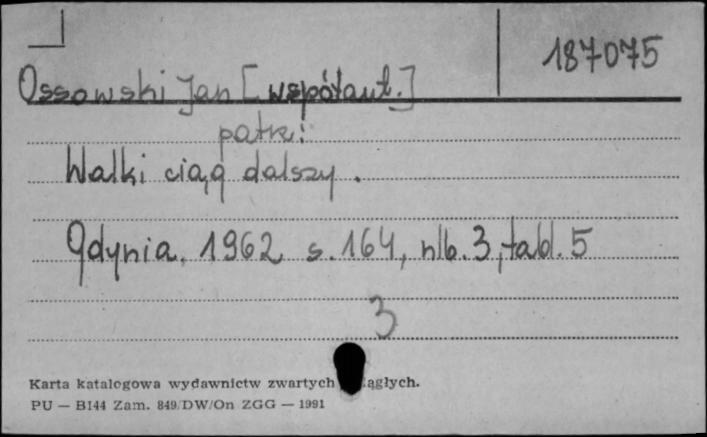 187075
Ossowski Jan [współaut.]
patrz:
Walki ciąg dalszy.
Gdynia, 1962 s. 164, nlb. 3, tabl. 5
3
Karta katalogowa wydawnictw zwartych ągłych.
PU — B144 Zam. 849/DW/On ZGG — 1991